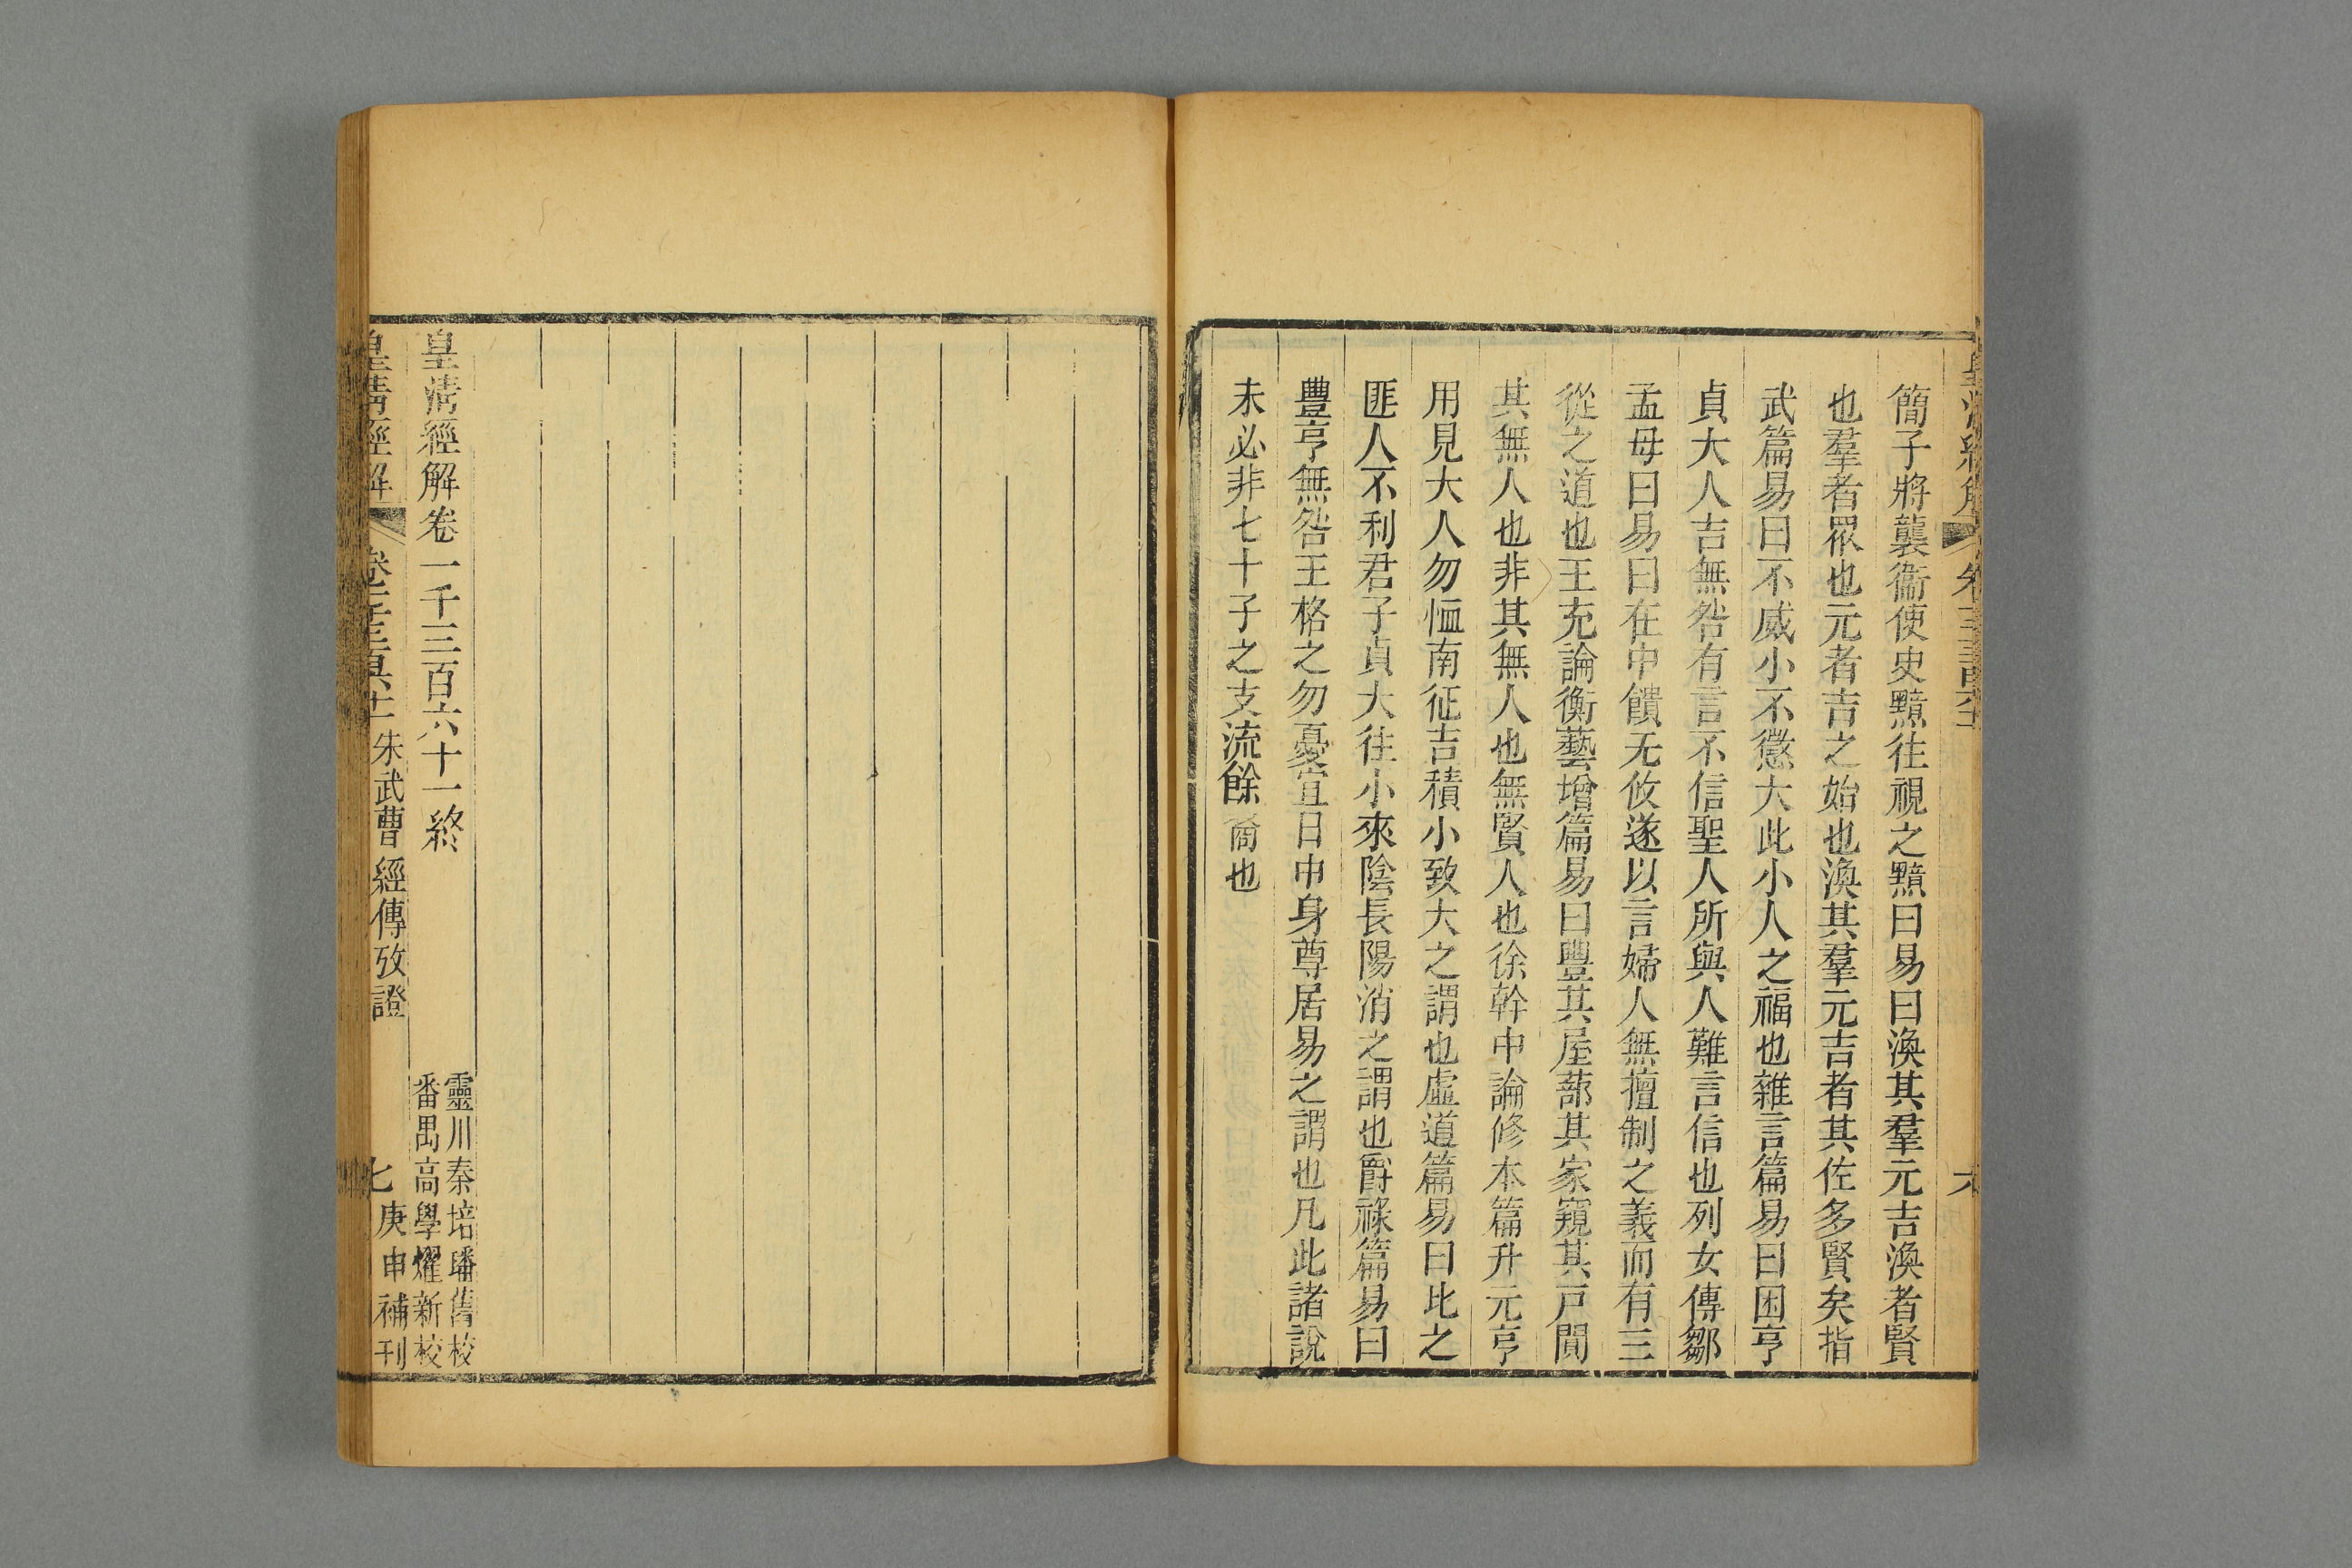 簡子將襲衞使史黯往視之黯曰易曰渙其羣元吉渙者賢
也羣者眾也元者吉之始也渙其羣元吉者其佐多賢矣指
武篇易曰不威小不懲大此小人之福也雜言篇易曰困亨
貞大人吉無咎有言不信聖人所與人難言信也列女傳鄒
孟母曰易曰在中饋无攸遂以言婦人無擅制之義而有三
從之道也王充論衡藝增篇易曰豐其屋蔀其家窺其戸閴
其無人也非其無人也無賢人也徐幹中論修本篇升元亨
用見大人勿恤南征吉積小致大之謂也虛道篇易曰比之
匪人不利君子貞大往小來陰長陽消之謂也爵祿篇易曰
豐亨無咎王格之勿憂宜日中身尊居易之謂也凡此諸說
未必非七十子之支流餘裔也
皇清經解卷一千三百六十一終
靈川秦培璠舊校
番禺高學燿新校
皇清經解
朱武曹經傳攷證
七
庚申補刊